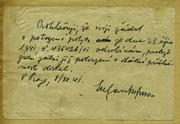 Prohlašuji, že svoji žádost
o potvrzení pobytu ze dne 23. září
1941, č. 436426/41 odvolávám, poněvadž
jsem zatím již potvrzení o státní přísluš-
nosti dostal.
V Praze, 8/XII 41.